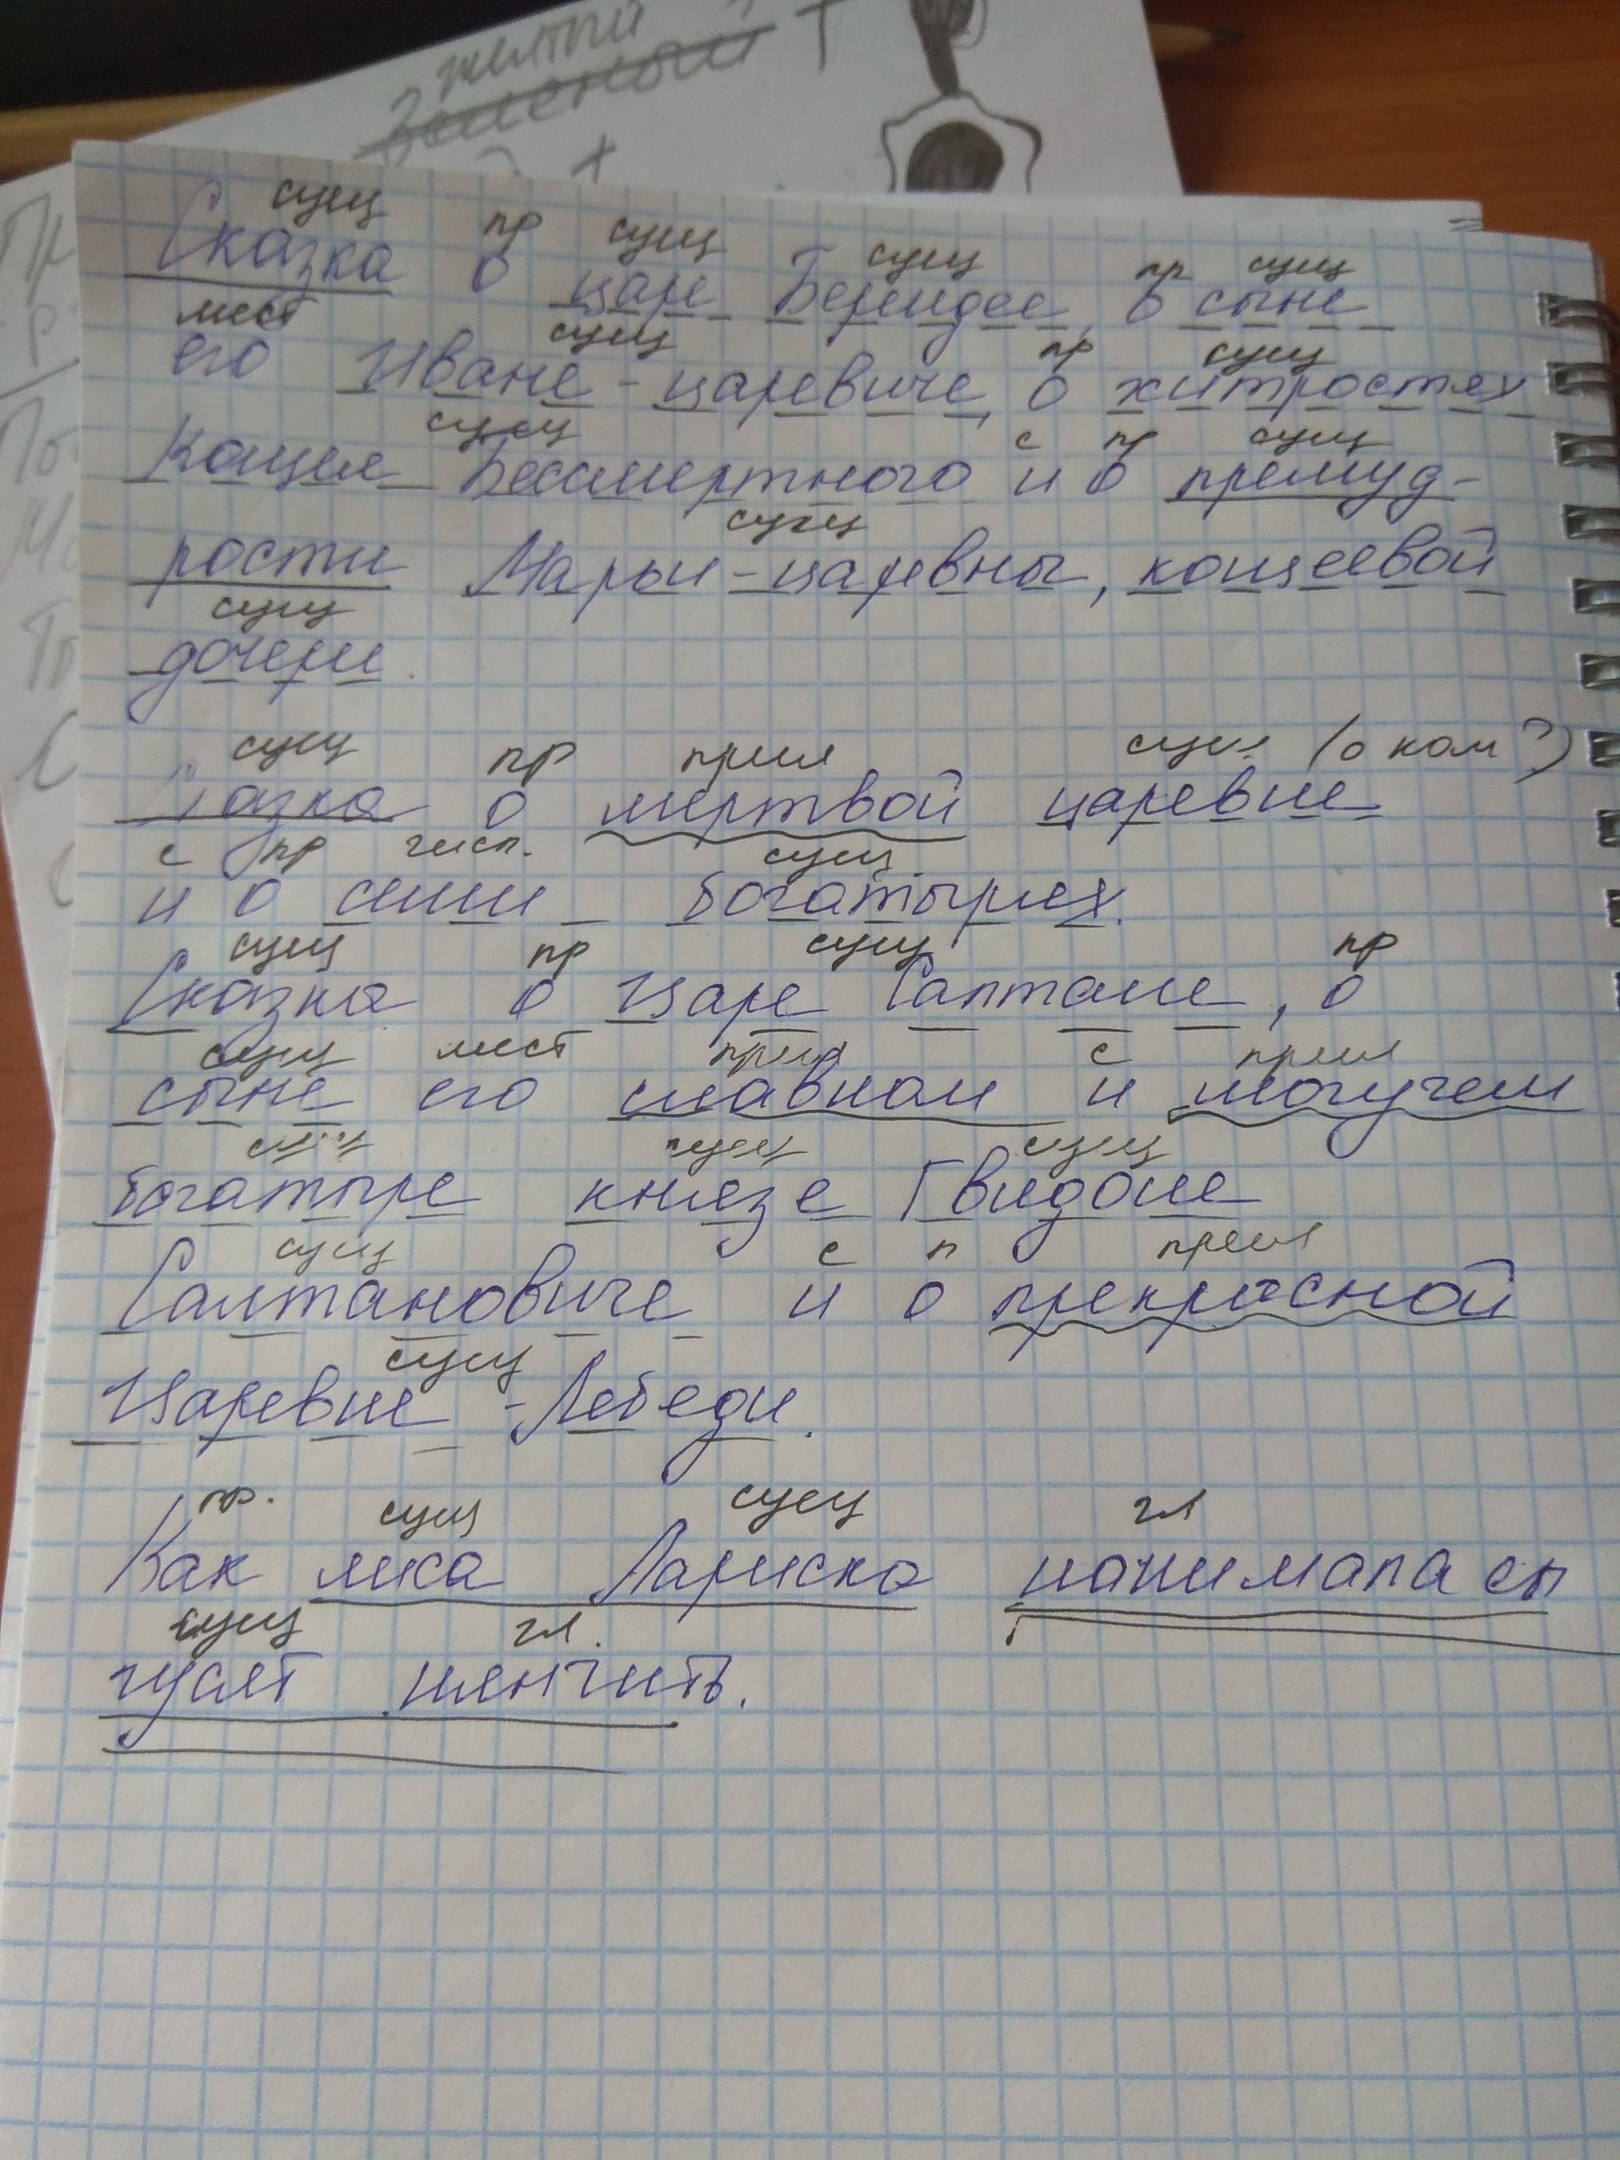 желтый
зеленый
сущ пр сущ сущ пр сущ
Сказка о царе Берендее, о сыне
мест сущ пр сущ
его Иване-царевиче, о хитростях
сущ с пр сущ
Кощея Бессмертного и о премуд-
сущ
рости Марьи-царевны, кощеевой
сущ
дочери.
сущ пр прил сущ (о ком?)
Сказка о мертвой царевне
с пр числ. сущ
и о семи богатырях.
сущ пр сущ пр
Сказка о Царе Салтане, о
сущ мест прил с прил
сыне его славном и могучем
сущ сущ сущ
богатыре князе Гвидоне
сущ с п прил
Салтановиче и о прекрасной
сущ
Царевне-Лебеди.
пр. сущ сущ гл
Как лиса Лариска нанималась
сущ гл.
гусят нянчить.